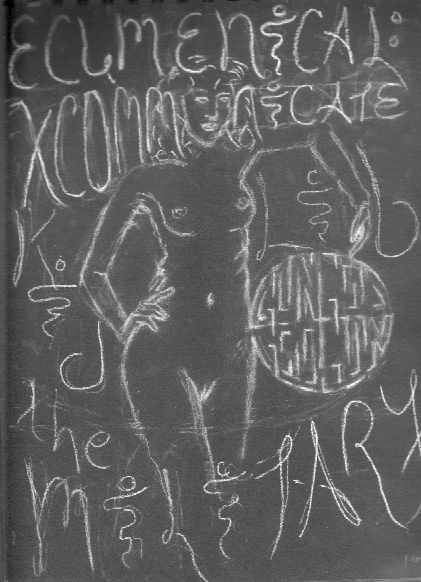 ECUMENiCAl:
XCOMMUNiCATE
the
MiLiTARY